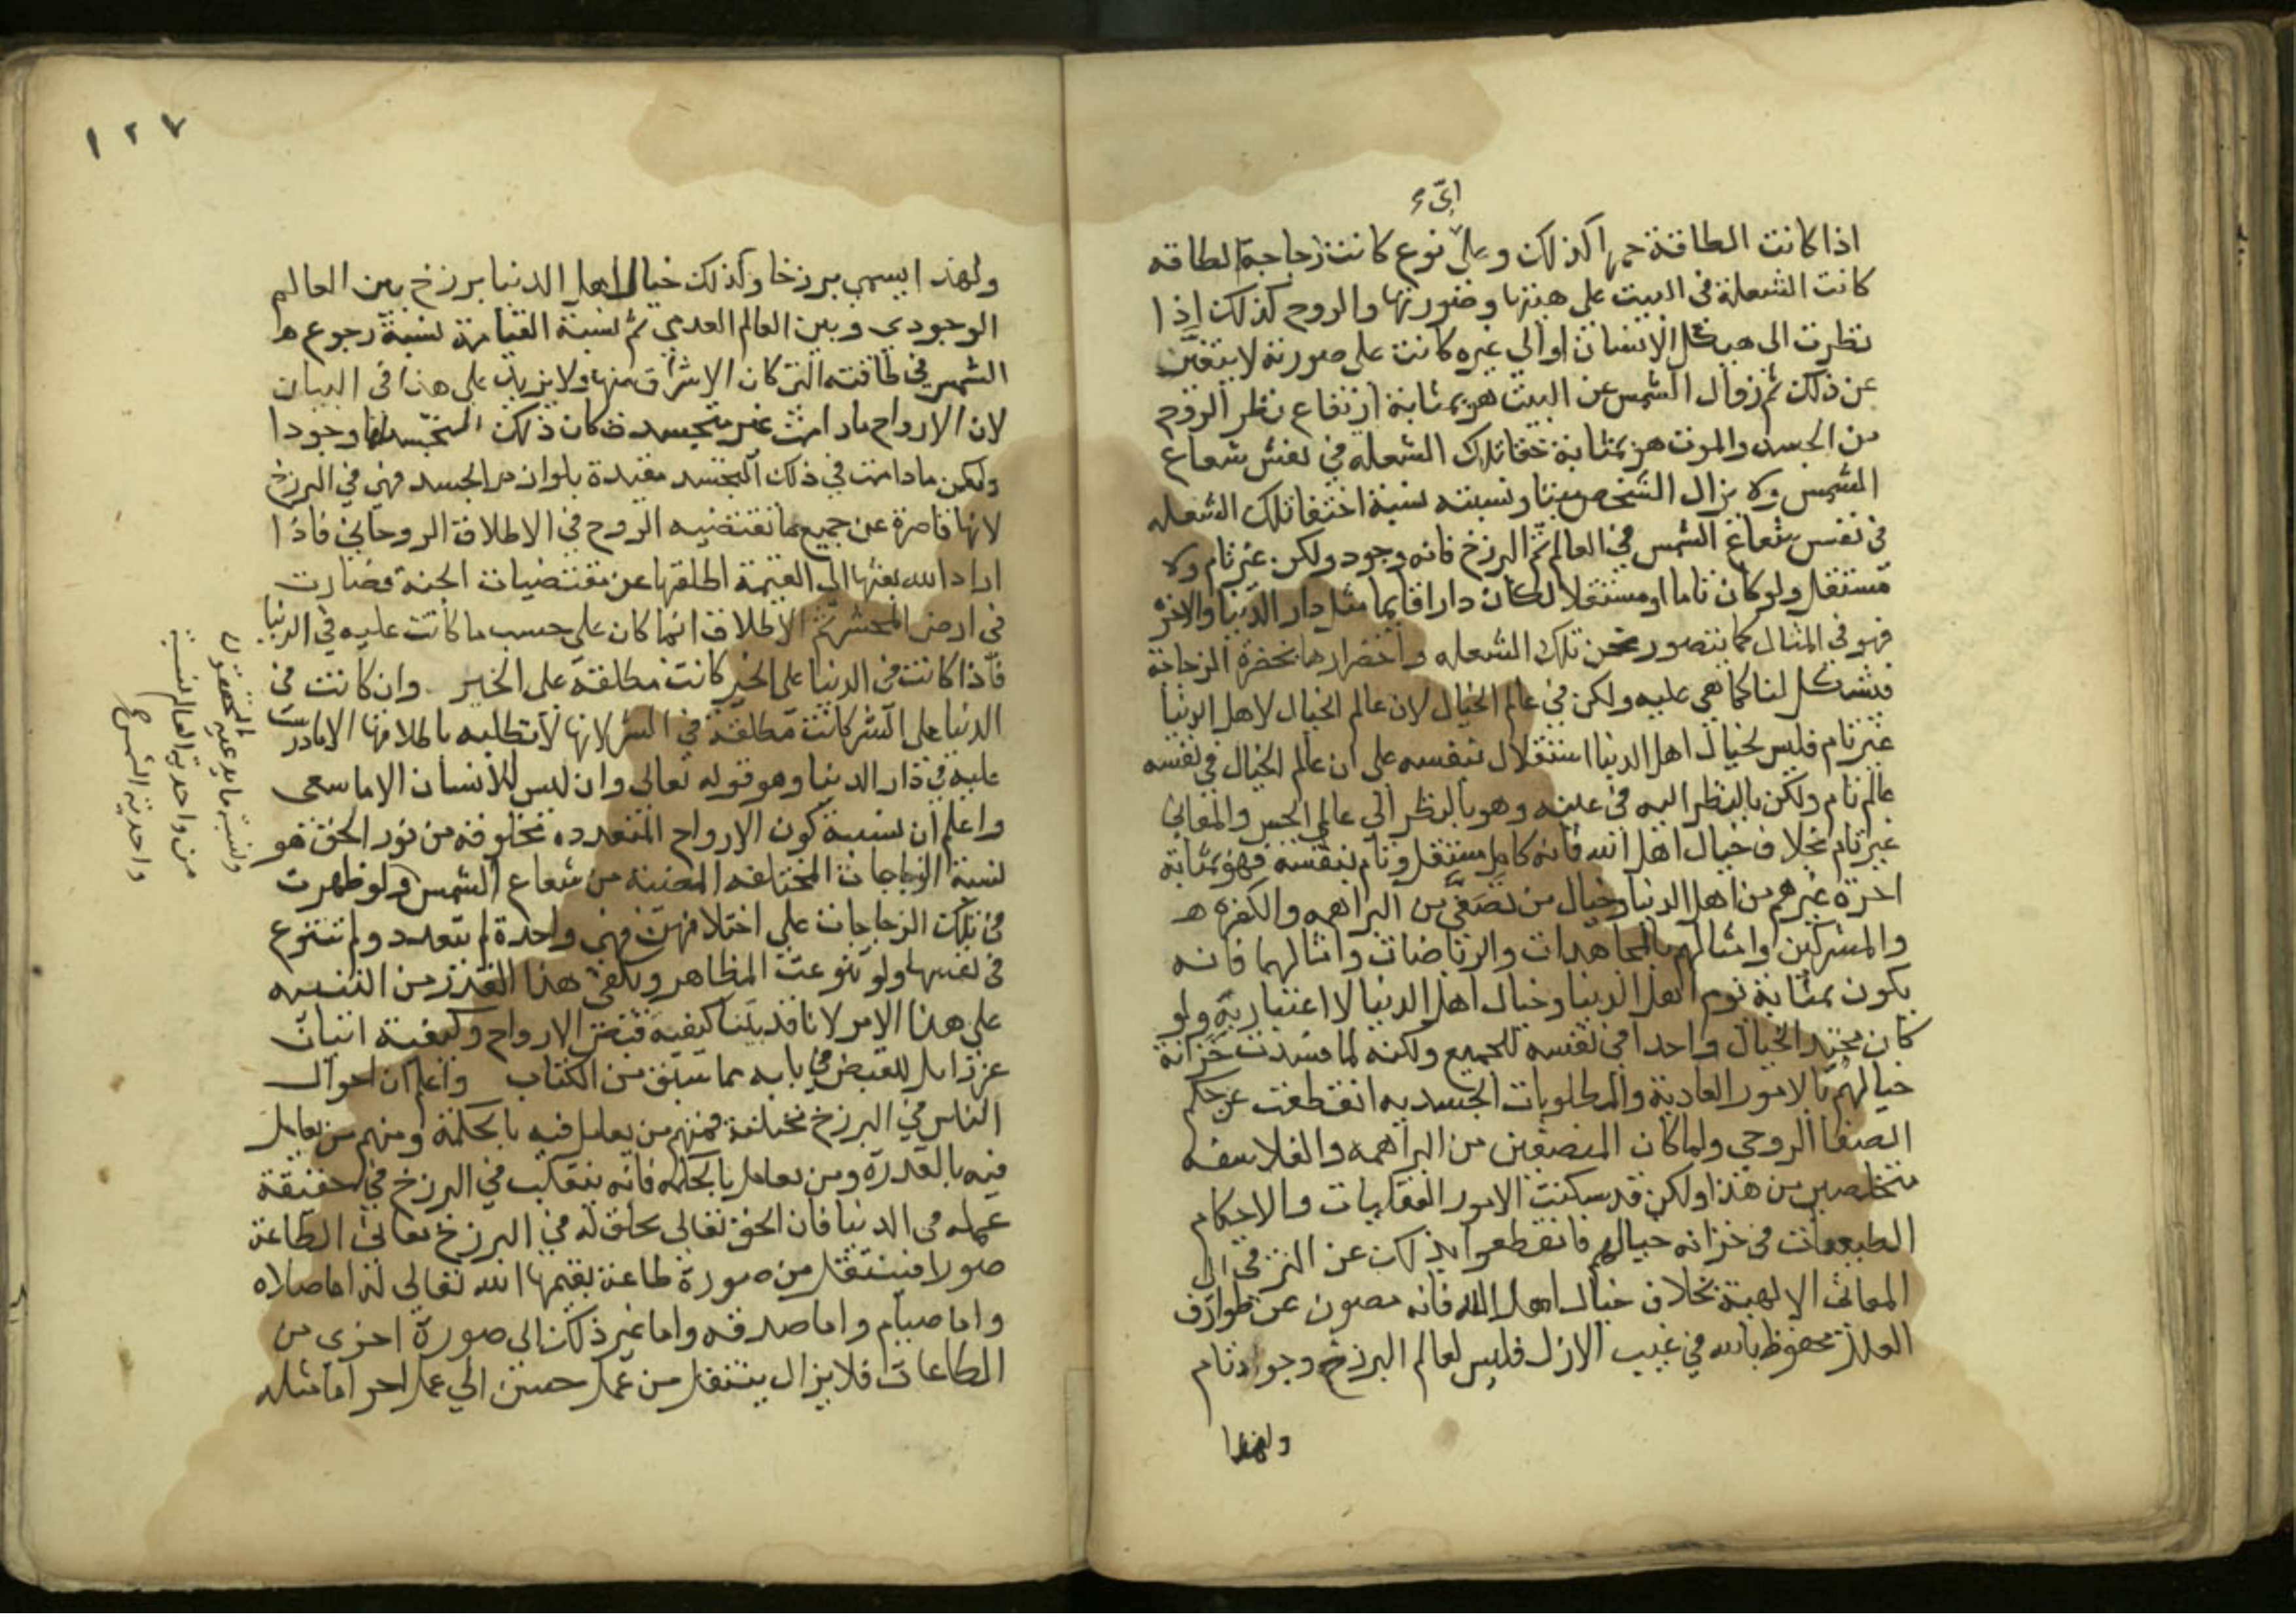 اىّ
اذا كانت الطاقة حمرا كذلك وعلى نوع كانت زجاجة الطاقه
كانت الشعلة في البيت على هيئتها وصورتها والروح كذلك اذا
نظرت الى هيكل الانسان او الى غيره كانت على صورته لا يتغير
عن ذلك ثم زوال الشمس عن البيت هو بمثابة ارتفاع نظر الروح
من الجسد والموت هو بمثابة خفا تلك الشعله في نفس شعاع
الشمس ولا يزال الشخص ميتا ونسبته نسبة اختفا تلك الشعله
في نفس شعاع الشمس في العالم ثم البرزخ فانه وجود ولكن غير تام ولا
مستقل ولو كان تاما او مستقلا لكان دارا قايما مثل دار الدنيا والاخره
فهو في المثال كما نتصور نحن تلك الشعله واخضرارها بخضرة الزجاجة
فتشكل لنا كما هي عليه ولكن في عالم الخيال لان عالم الخيال لاهل الدنيا
غير تام فليس لخيال اهل الدنيا استقلال بنفسه على ان عالم الخيال في نفسه
عالم تام ولكن بالنظر اليه في عينه وهو بالنظر الى عالم الحس والمعاني
غير تام بخلاف خيال اهل الله فانه كامل مستقل وتام بنفسه فهو بمثابة
اخرة غيرهم من اهل الدنيا وخيال من تصفى من البراهمه والكفره
والمشركين وامثالهم بالمجاهدات والرياضات وامثالهما فانه
يكون بمثابة نوم اهل الدنيا وخيال اهل الدنيا لا اعتبار به ولو
كان محتد الخيال واحدا في نفسه للجميع ولكنه لما فسدت خزانة
خيالهم بالامور العادية والمطلوبات الجسديه انقطعت عن حكم
الصفا الروحي ولما كان المتصفين من البراهمه والفلاسفه
متخلصين من هذا ولكن قد سكنت الامور العقليات والاحكام
الطبيعيات في خزانه خيالهم فانقطعوا بذلك عن الترقي الى
المعاني الالهية بخلاف خيال اهل الله فانه مصون عن طوارق
العلل محفوظ بالله في غيب الازل فليس لعالم البرزخ وجود تام
ولهذا
١٢٧
ولهذا يسمي برزخا وكذلك خيال اهل الدنيا برزخ بين العالم
الوجودي وبين العالم العدمي ثم نسبة القيامة نسبة رجوع
الشمس في طاقته التي كان الاشراق منها ولا نزيد على هذا في البيان
لان الارواح ما دامت غير متجسدة كان ذلك التجسد لها وجودا
ولكن ما دامت في ذلك التجسد مقيدة بلوازم الجسد فهي في البرزخ
لانها قاصرة عن جميع ما تقتضيه الروح في الاطلاق الروحاني فاذا
اراد الله بعثها الى القيمة اطلقها عن مقتضيات الجنة فصارت
في ارض المحشر ثم الاطلاق انما كان على حسب ما كانت عليه في الدنيا
فاذا كانت في الدنيا على الخير كانت مطلقة على الخير وان كانت في
الدنيا على الشر كانت مطلقة في الشر لانها لا تطلب باطلاقها الا ما درست
عليه في دار الدنيا وهو قوله تعالى وان ليس للانسان الا ما سعى
واعلم ان نسبة كون الارواح المتعدده مخلوقة من نور الحق هو
نسبة الزجاجات المختلفه المضيئة من شعاع الشمس ولو ظهرت
في تلك الزجاجات على اختلافهن فهي واحدة لم تتعدد ولم تتنوع
في نفسها ولو تنوعت المظاهر ويكفي هذا القدر من التنبيه
على هذا الامر لانا قد بينا كيفية قبض الارواح وكيفية اتيان
عزرايل للقبض في بابه مما سبق من الكتاب واعلم ان احوال
الناس في البرزخ مختلفة فمنهم من يعامل فيه بالحكمة ومنهم من يعامل
فيه بالقدرة ومن يعامل بالحكمه فانه ينقلب في البرزخ في حقيقة
عمله في الدنيا فان الحق تعالى يخلق له في البرزخ معاني الطاعة
صورا فينتقل من صورة طاعة يقيمها الله تعالى له اما صلاه
واما صيام واما صدقه واما غير ذلك الى صورة اخرى من
الطاعات فلا يزال ينتقل من عمل حسن الى عمل اخر اما مثله
ونسبة ما يدعيه المحققون
من واحدية العالم نسبة
واحدية الشمس